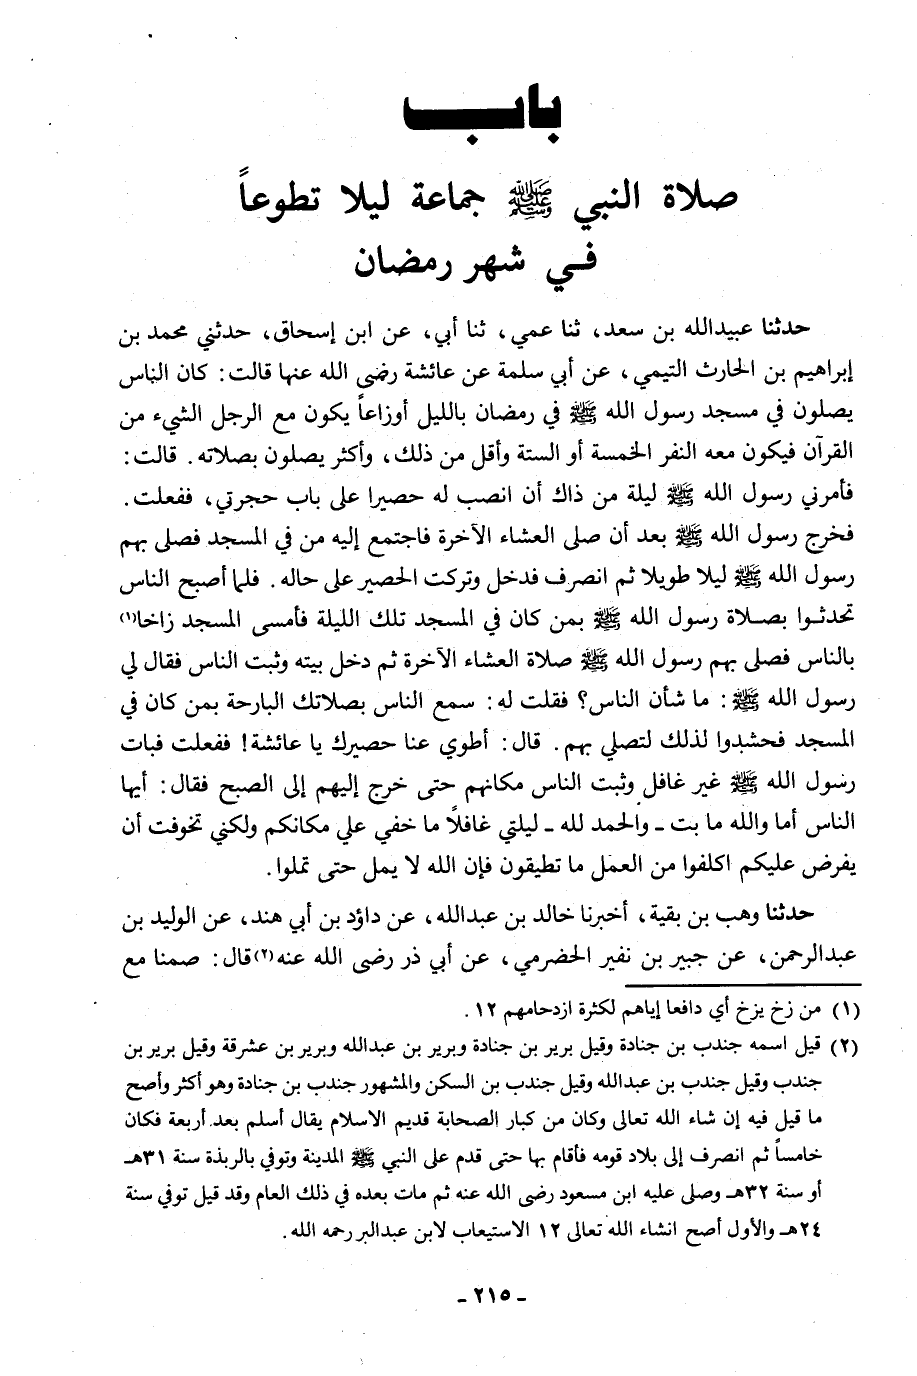 باب
صلاة النبي ﷺ جماعة ليلا تطوعاً
في شهر رمضان
حدثنا عبيدالله بن سعد، ثنا عمي، ثنا أبي، عن ابن إسحاق، حدثني محمد بن
إبراهيم بن الحارث التيمي، عن أبي سلمة عن عائشة رضى الله عنها قالت: كان الناس
يصلون في مسجد رسول الله ﷺ في رمضان بالليل أوزاعاً يكون مع الرجل الشيء من
القرآن فيكون معه النفر الخمسة أو الستة وأقل من ذلك، وأكثر يصلون بصلاته. قالت:
فأمرني رسول الله ﷺ ليلة من ذاك أن انصب له حصيرا على باب حجرتي، ففعلت.
فخرج رسول الله ﷺ بعد أن صلى العشاء الآخرة فاجتمع إليه من في المسجد فصلى بهم
رسول الله ﷺ ليلا طويلا ثم انصرف فدخل وتركت الحصير على حاله. فلما أصبح الناس
تحدثوا بصلاة رسول الله ﷺ بمن كان في المسجد تلك الليلة فأمسى المسجد زاخا(١)
بالناس فصلى بهم رسول الله ﷺ صلاة العشاء الآخرة ثم دخل بيته وثبت الناس فقال لي
رسول الله ﷺ: ما شأن الناس؟ فقلت له: سمع الناس بصلاتك البارحة بمن كان في
المسجد فحشدوا لذلك لتصلي بهم. قال: أطوي عنا حصيرك يا عائشة! ففعلت فبات
رسول الله ﷺ غير غافل وثبت الناس مكانهم حتى خرج إليهم إلى الصبح فقال: أيها
الناس أما والله ما بت ـ والحمد لله ـ ليلتي غافلاً ما خفي علي مكانكم ولكني تخوفت أن
يفرض عليكم اكلفوا من العمل ما تطيقون فإن الله لا يمل حتى تملوا.
حدثنا وهب بن بقية، أخبرنا خالد بن عبدالله، عن داؤد بن أبي هند، عن الوليد بن
عبدالرحمن، عن جبير بن نفير الحضرمي، عن أبي ذر رضى الله عنه(٢) قال: صمنا مع
(١) من زخ يزخ أي دافعا إياهم لكثرة ازدحامهم ١٢.
(٢) قيل اسمه جندب بن جنادة وقيل برير بن جنادة وبرير بن عبدالله وبرير بن عشرقة وقيل برير بن
جندب وقيل جندب بن عبدالله وقيل جندب بن السكن والمشهور جندب بن جنادة وهو أكثر وأصح
ما قيل فيه إن شاء الله تعالى وكان من كبار الصحابة قديم الاسلام يقال أسلم بعد أربعة فكان
خامساً ثم انصرف إلى بلاد قومه فأقام بها حتى قدم على النبي ﷺ المدينة وتوفي بالربذة سنة ٣١هـ
أو سنة ٣٢هـ وصلى عليه ابن مسعود رضى الله عنه ثم مات بعده في ذلك العام وقد قيل توفي سنة
٢٤هـ والأول أصح انشاء الله تعالى ١٢ الاستيعاب لابن عبدالبر رحمه الله.
ـ ٢١٥ ـ